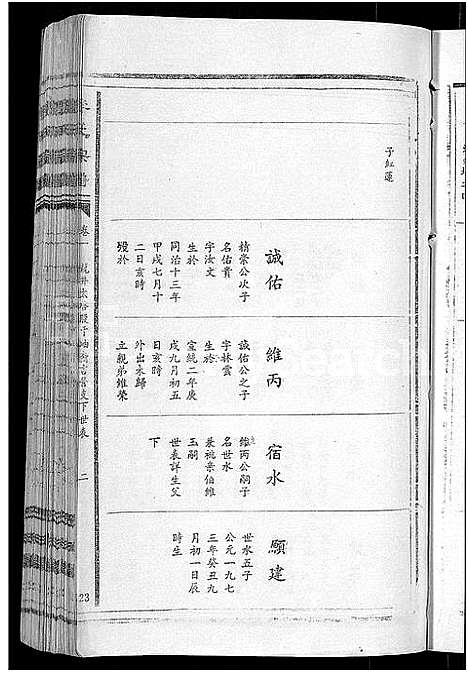 子紅蓮
誠佑
精崇公次子
名佑賁
字汝文
生於
同治十三年
甲戌七月十
二日亥時
殁於
維丙
誠佑公之子
字林雲
生於
宣統二年庚
戌九月初五
日亥時
外出未歸
立親弟維榮
宿水
維丙公嗣子
名世水
兼祧
伯維
玉嗣
世表詳生父
下
顯建
世水五子
公元一九七
三年癸丑九
月初一日辰
時生
卷一
下世表
二
23